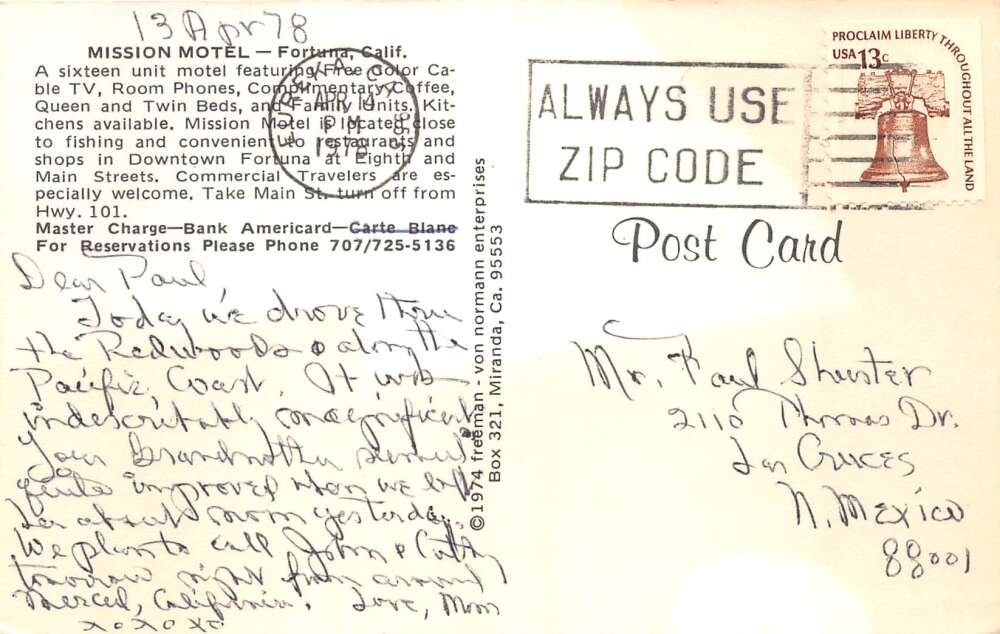 13 Apr 78
MISSION MOTEL — Fortuna, Calif.
A sixteen unit motel featuring Free Color Ca-
ble TV, Room Phones, Complimentary Coffee,
Queen and Twin Beds, and Family Units. Kit-
chens available. Mission Motel is located close
to fishing and convenient to restaurants and
shops in Downtown Fortuna at Eighth and
Main Streets. Commercial Travelers are es-
pecially welcome. Take Main St. turn off from
Hwy. 101.
Master Charge—Bank Americard—Carte Blane
For Reservations Please Phone 707/725-5136
Dear Paul,
Today we drove thru
the Redwoods & along the
Pacific Coast. It was
indescribably magnificent.
Your Grandmother seemed
quite improved when we left
her about noon yesterday.
We plan to call John & Cathy
tomorrow night from around
Merced, California. Love, Mom
xoxoxo
©1974 freeman - von normann enterprises
Box 321, Miranda, Ca. 95553
EUREKA, CA
APR 14
PM
1978
95501
ALWAYS USE
ZIP CODE
PROCLAIM LIBERTY THROUGHOUT ALL THE LAND
USA 13c
Post Card
Mr. Paul Shuster
2110 Thomas Dr.
Las Cruces
N. Mexico
88001